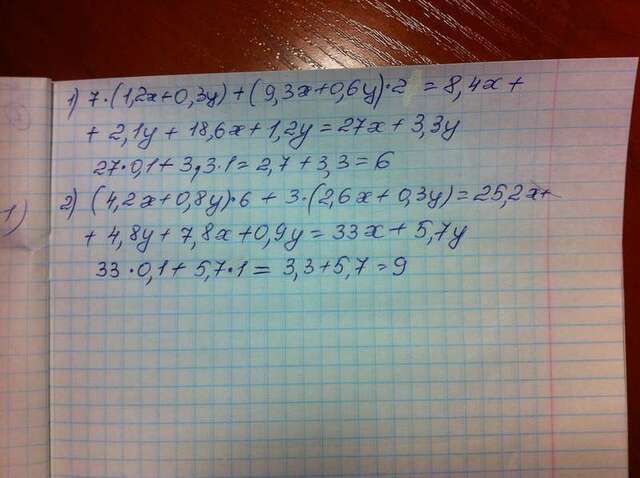 1) 7·(1,2x+0,3y)+(9,3x+0,6y)·2 = 8,4x+
+ 2,1y + 18,6x+1,2y = 27x + 3,3y
27·0,1+3,3·1=2,7+3,3=6
1)
2) (4,2x+0,8y)·6 + 3·(2,6x+0,3y)=25,2x+
+ 4,8y + 7,8x+0,9y = 33x + 5,7y
33·0,1+5,7·1 = 3,3+5,7=9